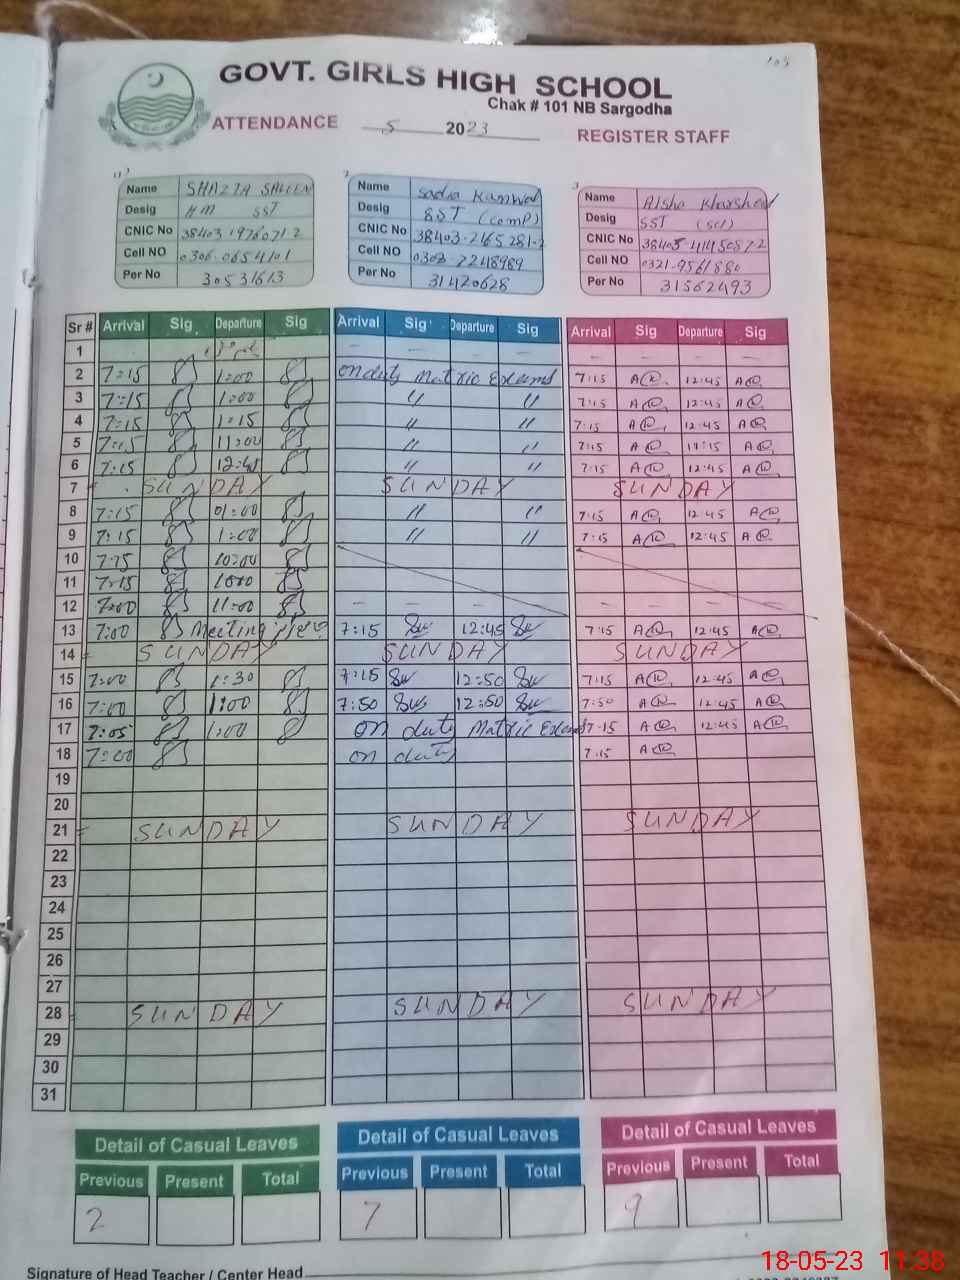 105
GOVT. GIRLS HIGH SCHOOL
Chak # 101 NB Sargodha
ATTENDANCE 5 2023 REGISTER STAFF
Name SHAZIA SALEEM
Desig HM SST
CNIC No
Cell NO 0306-0654101
Per No 30531613
2
Name Sadia Kanwal
Desig SST (comp)
CNIC No 38403-2165281-2
Cell NO
Per No 31420628
3
Name Aisha Khurshed
Desig SST (sci)
CNIC No
Cell NO 0321-9561880
Per No 31562493
Sr # Arrival Sig Departure Sig Arrival Sig Departure Sig Arrival Sig Departure Sig
1 – – – – – – – –
2 7:15 1:00 on duty Matric Exams 7:15 12:45
3 7:15 1:00 " " 7:15 12:45
4 7:15 1:15 " " 7:15 12:45
5 7:15 11:00 " " 7:15 11:15
6 7:15 " " 7:15 12:45
7 SUNDAY SUNDAY SUNDAY
8 7:15 01:00 " " 7:15 12:45
9 7:15 1:00 " " 7:15 12:45
10 7:15 10:00
11 7:15 1000
12 7:00 11:00 – – – – – – – –
13 7:00 Meeting 7:15 12:45 7:15 12:45
14 SUNDAY SUNDAY SUNDAY
15 7:00 1:30 7:15 12:50 7:15 12:45
16 7:00 1:00 7:50 12:50 7:50 12:45
17 7:05 1:00 on duty Matric Exams 7:15 12:45
18 7:00 on duty 7:15
19
20
21 SUNDAY SUNDAY SUNDAY
22
23
24
25
26
27
28 SUNDAY SUNDAY SUNDAY
29
30
31
Detail of Casual Leaves Detail of Casual Leaves Detail of Casual Leaves
Previous Present Total Previous Present Total Previous Present Total
2 7 9
Signature of Head Teacher / Center Head
18-05-23 11:38